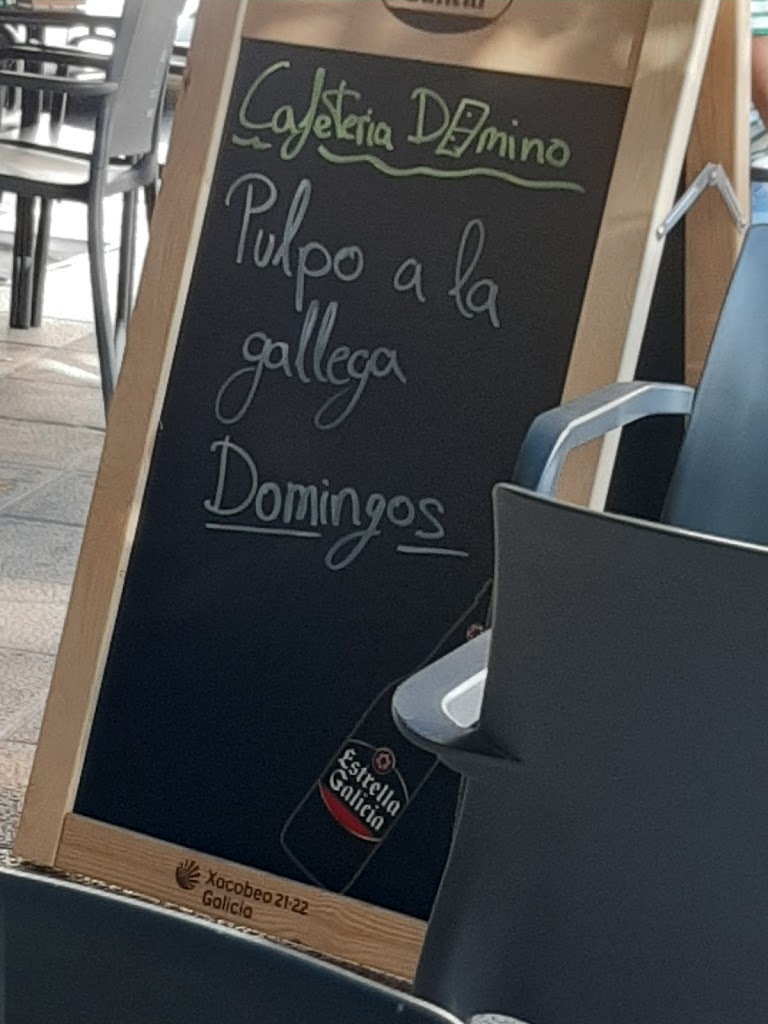 Galicia
Cafeteria Domino
Pulpo a la
gallega
Domingos
Estrella
Galicia
Xacobeo 21·22
Galicia